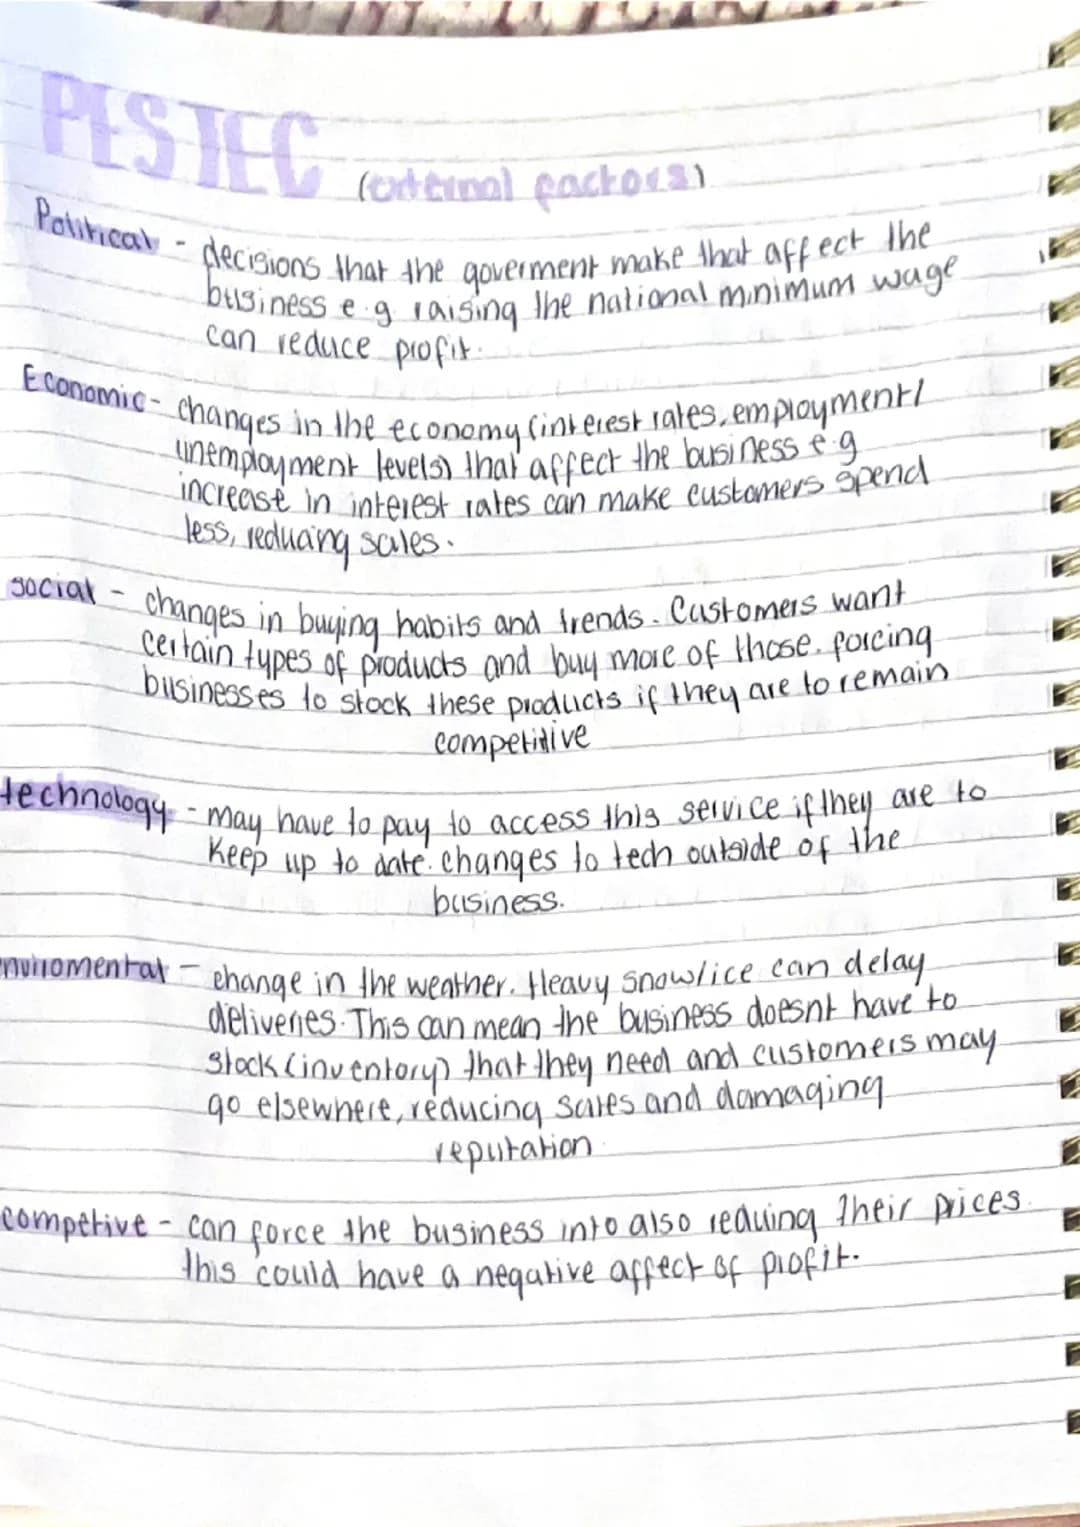 PESTEC
(external factors)
Political - decisions that the goverment make that affect the
business e.g raising the national minimum wage
can reduce profit.
Economic - changes in the economy (interest rates, employment/
unemployment levels) that affect the business e.g
increase in interest rates can make customers spend
less, reducing sales.
social - changes in buying habits and trends. Customers want
certain types of products and buy more of those. forcing
businesses to stock these products if they are to remain
competitive
technology - may have to pay to access this service if they are to
keep up to date. changes to tech outside of the
business.
nviromental - change in the weather. Heavy snow/ice can delay
deliveries. This can mean the business doesnt have to
stock (inventory) that they need and customers may
go elsewhere, reducing sales and damaging
reputation
competive - can force the business into also reduing their prices.
this could have a negative affect of profit.